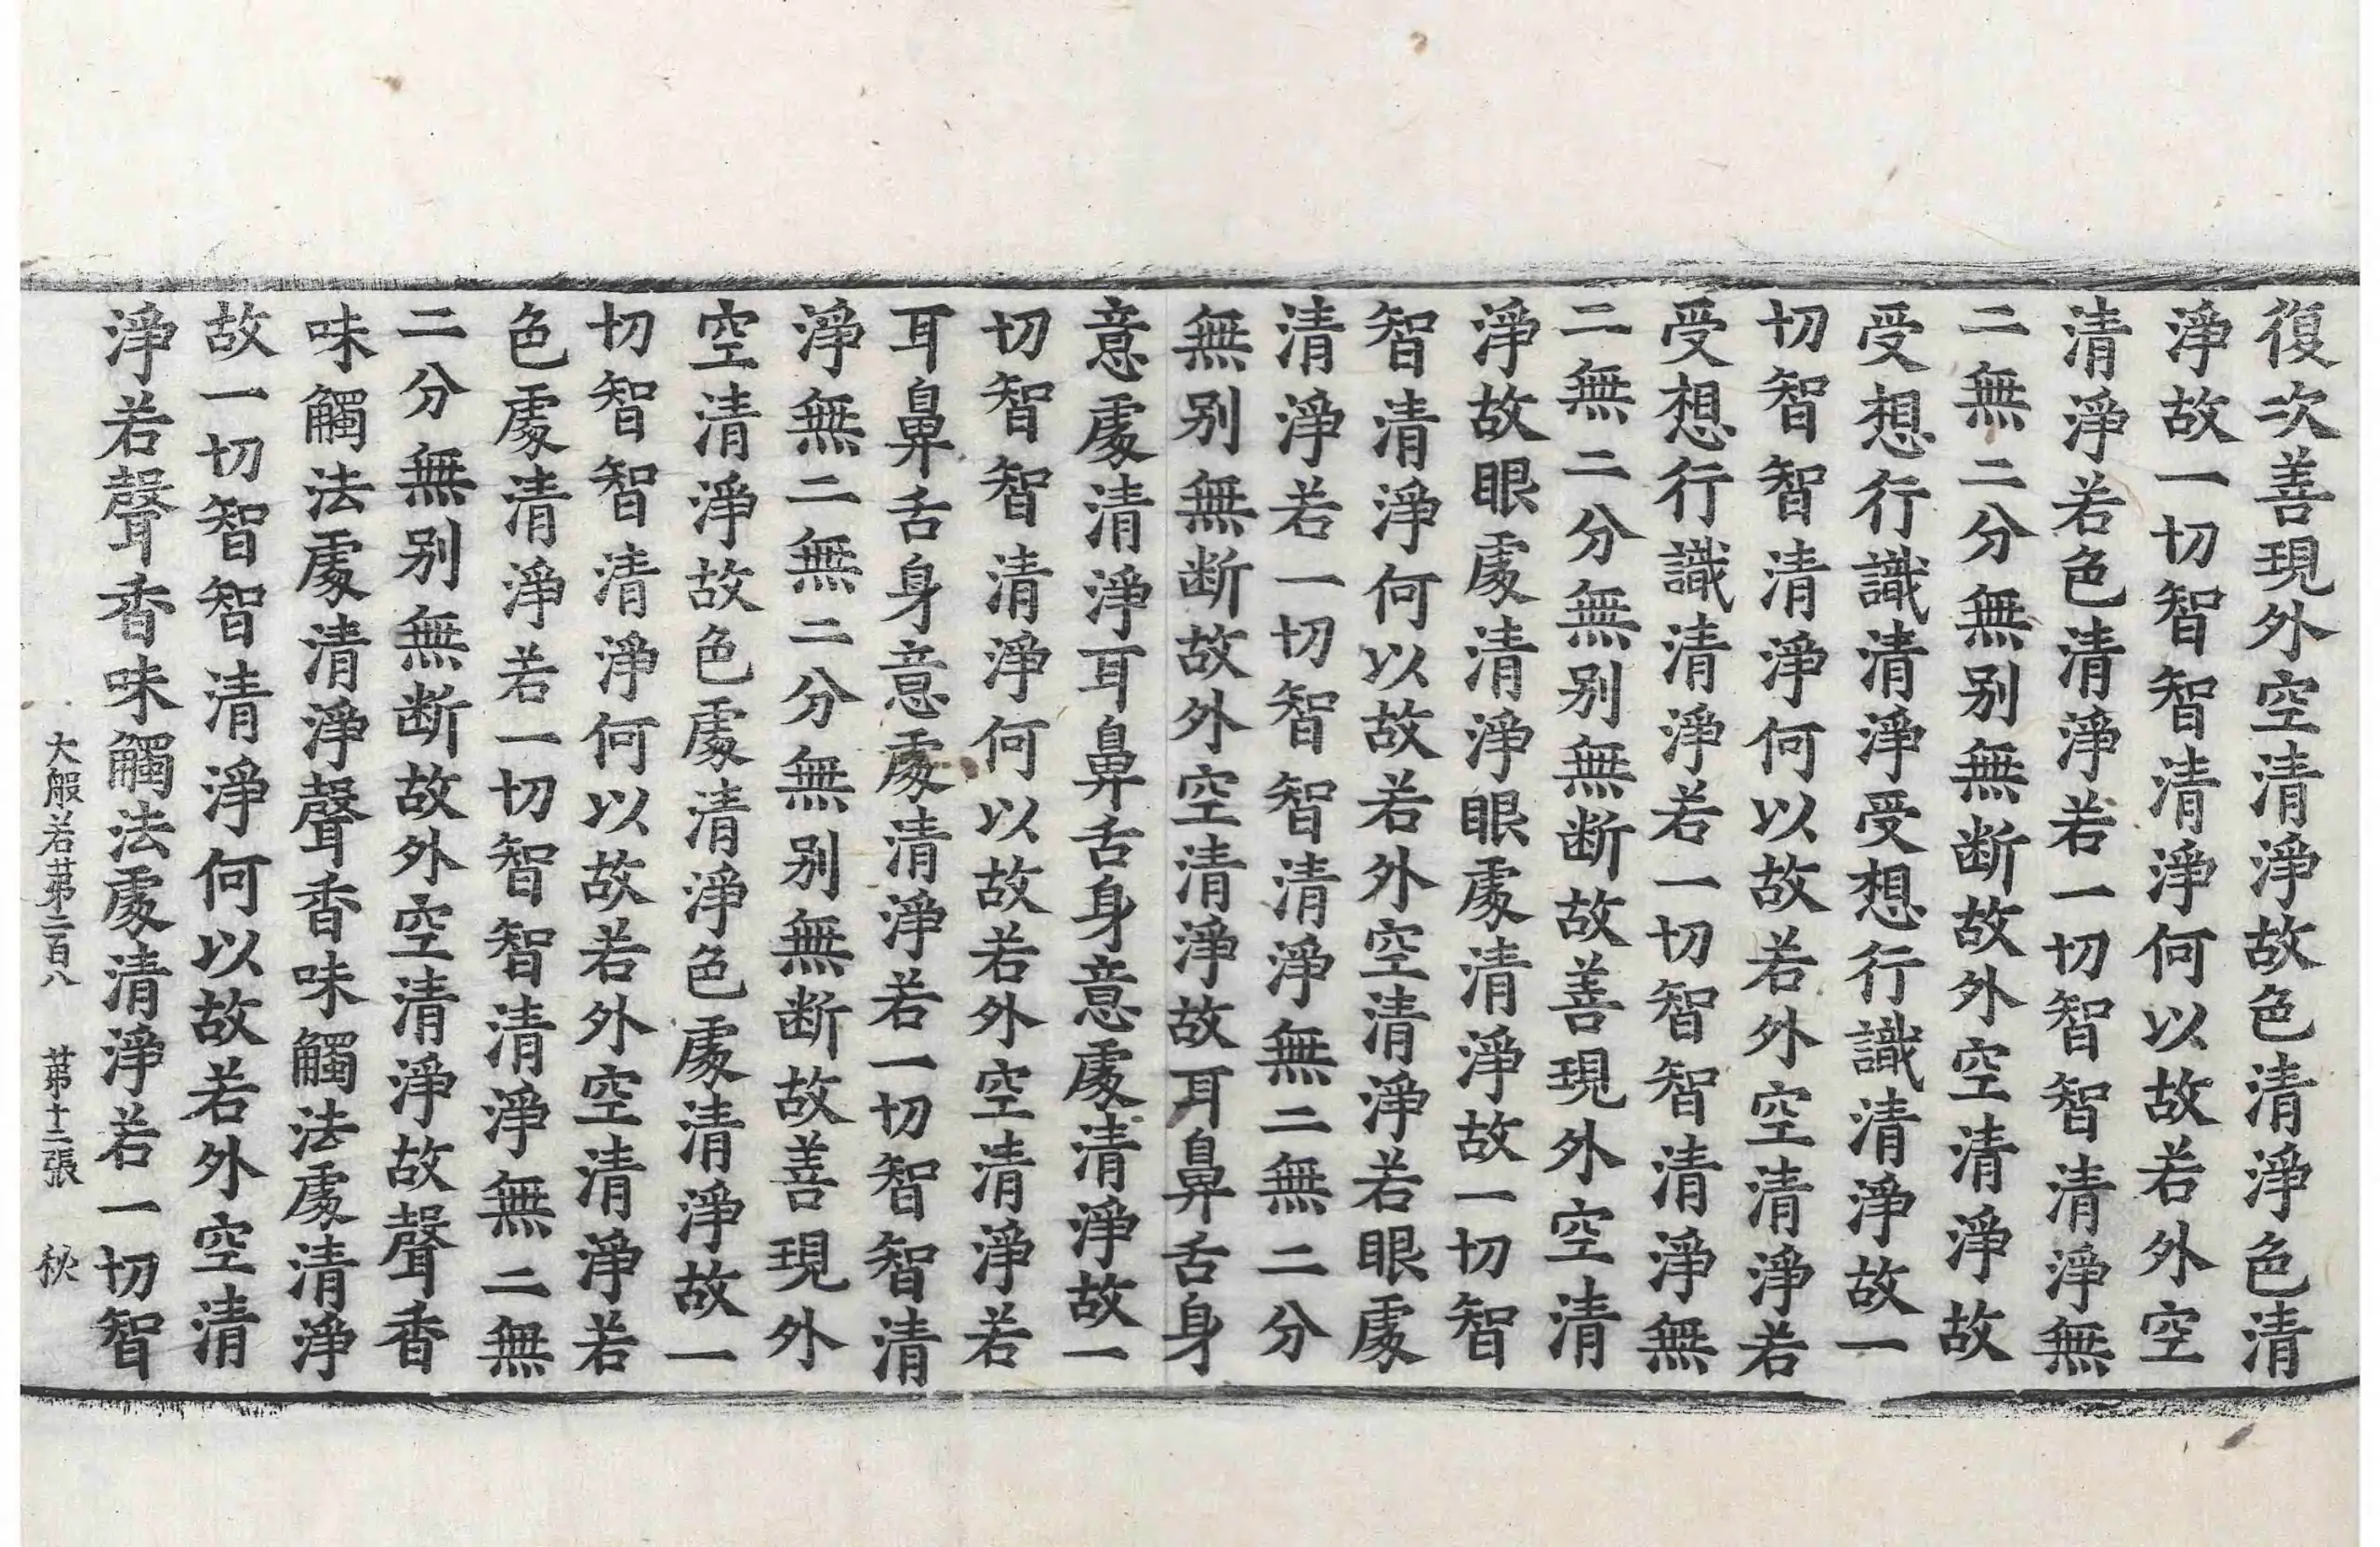 復次善現外空清淨故色清淨色清
淨故一切智智清淨何以故若外空
清淨若色清淨若一切智智清淨無
二無二分無别無断故外空清淨故
受想行識清淨受想行識清淨故一
切智智清淨何以故若外空清淨若
受想行識清淨若一切智智清淨無
二無二分無别無断故善現外空清
淨故眼處清淨眼處清淨故一切智
智清淨何以故若外空清淨若眼處
清淨若一切智智清淨無二無二分
無别無断故外空清淨故耳鼻舌身
意處清淨耳鼻舌身意處清淨故一
切智智清淨何以故若外空清淨若
耳鼻舌身意處清淨若一切智智清
淨無二無二分無别無断故善現外
空清淨故色處清淨色處清淨故一
切智智清淨何以故若外空清淨若
色處清淨若一切智智清淨無二無
二分無别無断故外空清淨故聲香
味觸法處清淨聲香味觸法處清淨
故一切智智清淨何以故若外空清
淨若聲香味觸法處清淨若一切智
大般若苐二百八 苐十二張 秋